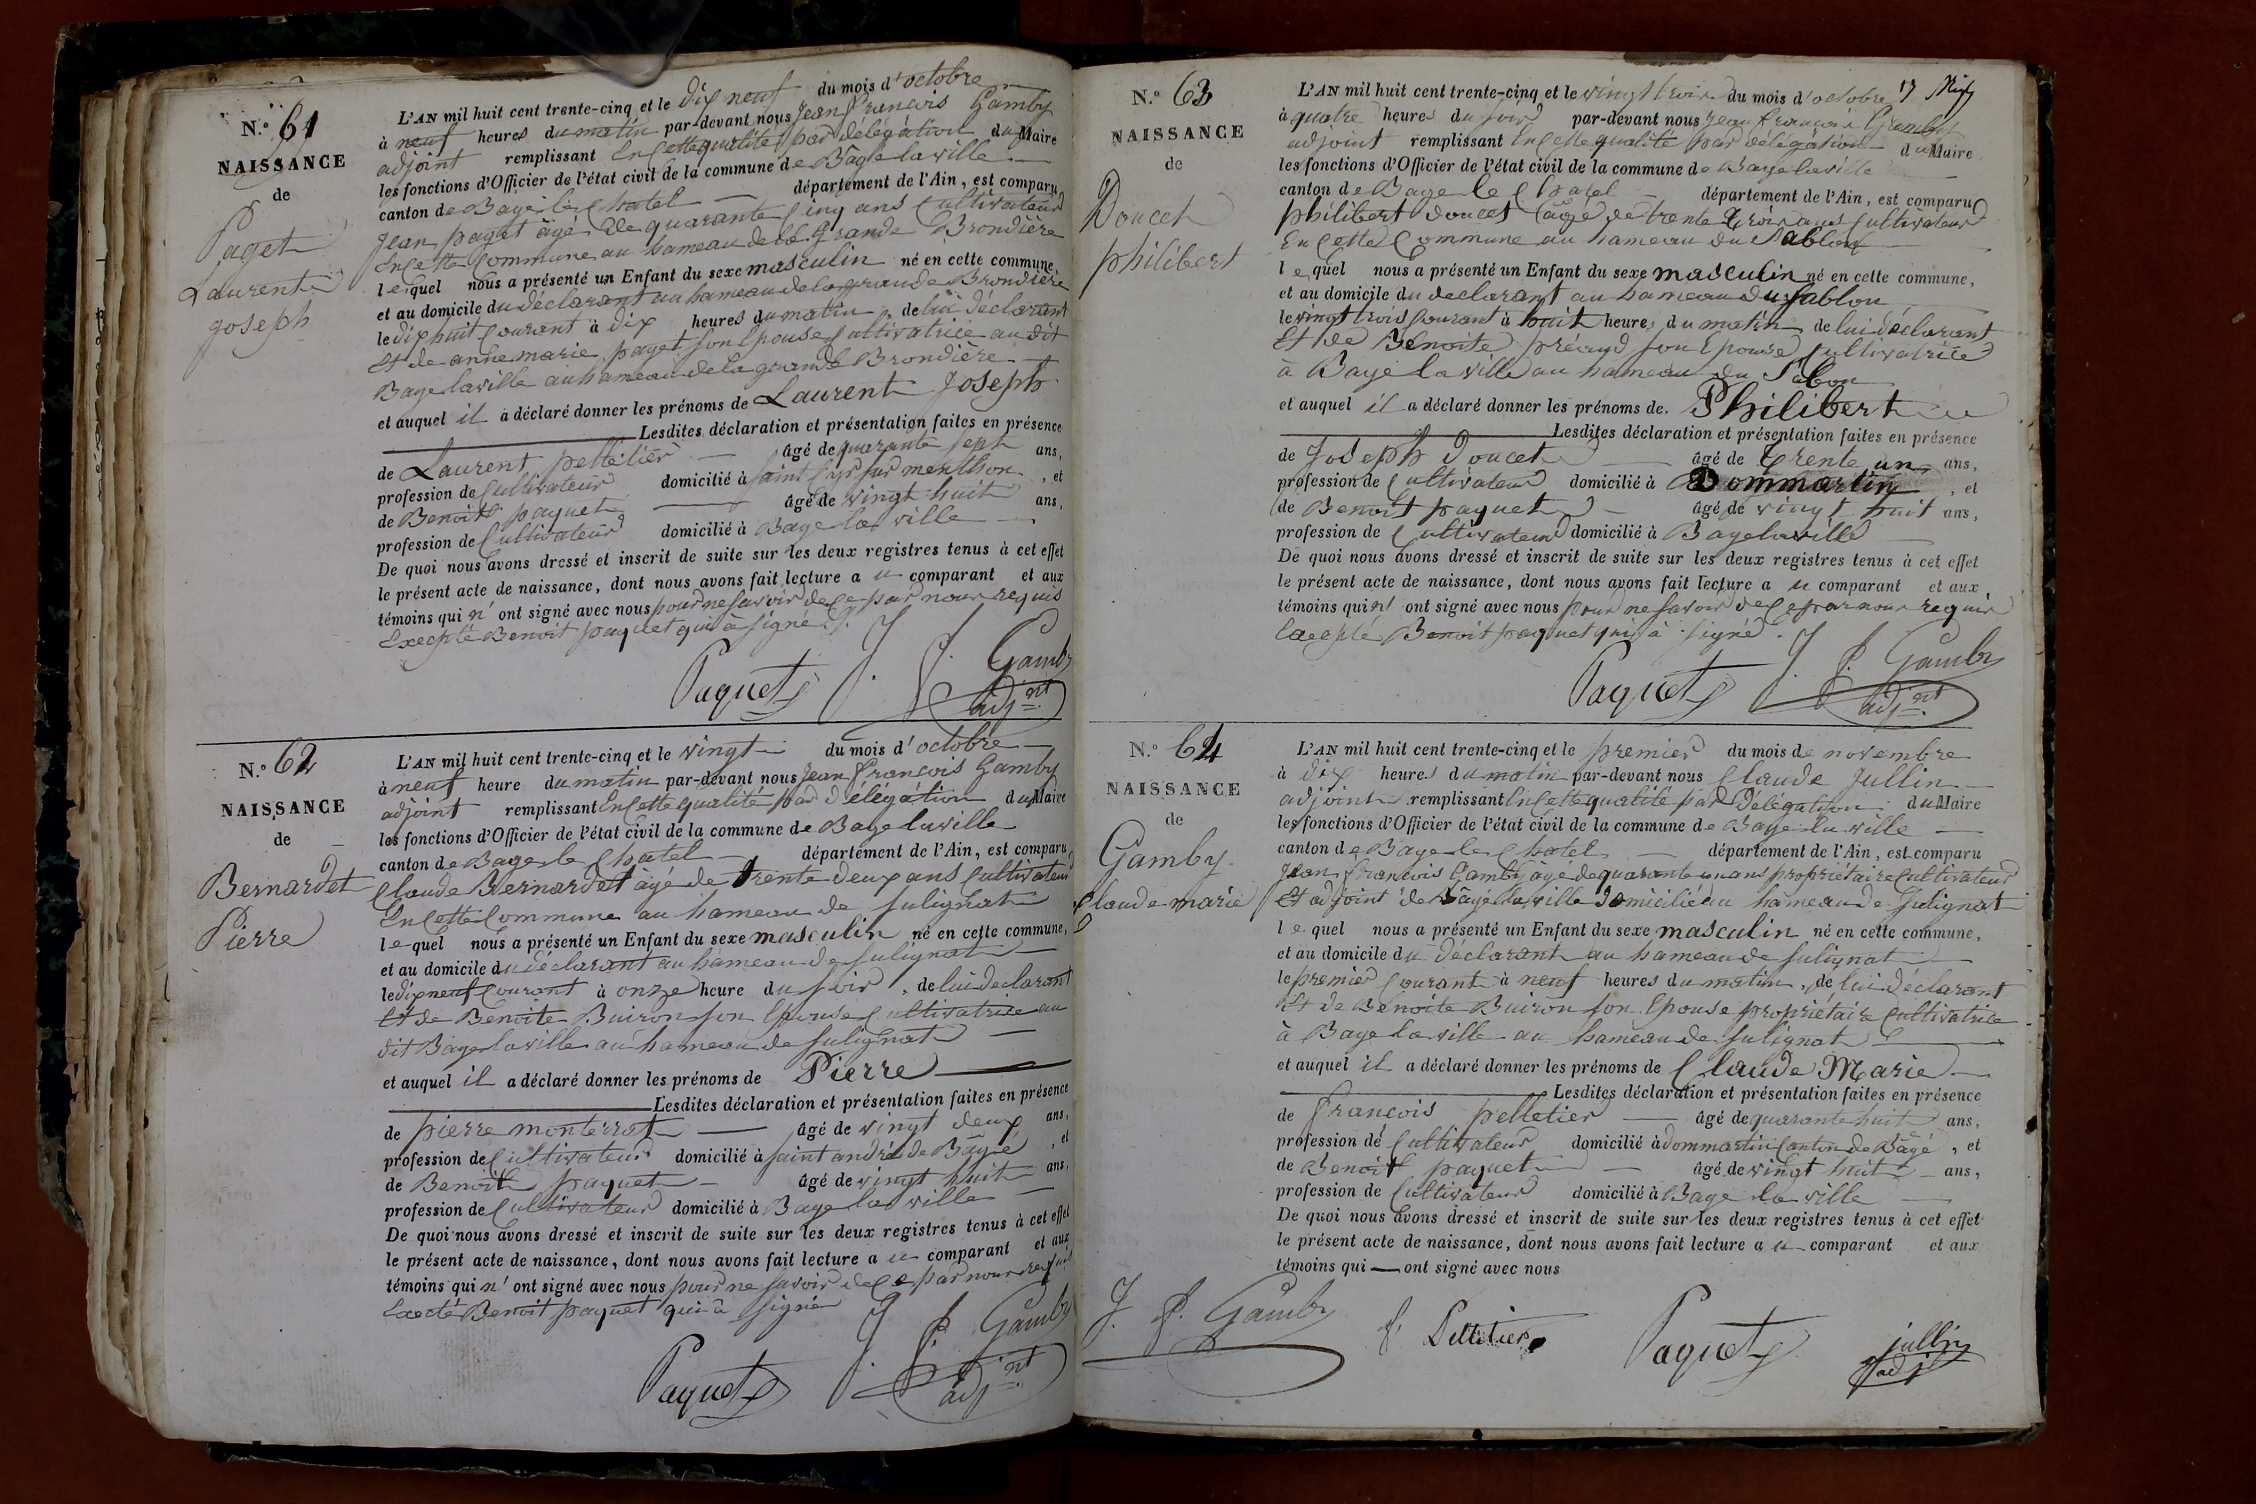 N.° 61
NAISSANCE
de
Paget
Laurent
joseph
L'AN mil huit cent trente-cinq et le dix neuf du mois d'octobre
à neuf heures du matin par-devant nous Jean françois Gamby
adjoint remplissant En Cette qualité par délégation du Maire
les fonctions d'Officier de l'état civil de la commune de Bâgé la ville
canton de Bagé le Chatel département de l'Ain, est comparu
Jean paget âgé de quarante Cinq ans Cultivateur
En Cette Commune au hameau de la Grande Brondière
lequel nous a présenté un Enfant du sexe masculin né en cette commune,
et au domicile du déclarant au hameau de la grande Brondière
le dix huit Courant à dix heures du matin, de lui déclarant
Et de anne marie paget son Epouse Cultivatrice au dit
Bage laville au hameau de la grande Brondière
et auquel il a déclaré donner les prénoms de Laurent Joseph
Lesdites déclaration et présentation faites en présence
de Laurent pelletier âgé de quarante sept ans,
profession de Cultivateur domicilié à saint Cyr sur menthon, et
de Benoit paquet âgé de vingt huit ans,
profession de Cultivateur domicilié à Bage la ville
De quoi nous avons dressé et inscrit de suite sur les deux registres tenus à cet effet
le présent acte de naissance, dont nous avons fait lecture a u comparant et aux
témoins qui n'ont signé avec nous pour ne savoir de Ce par nous requis
Excepté Benoit paquet qui à signé.
Paquet J. F. Gamby
adj.nt
N.° 62
NAISSANCE
de
Bernardet
Pierre
L'AN mil huit cent trente-cinq et le vingt du mois d'octobre
à neuf heure du matin par-devant nous Jean françois Gamby
adjoint remplissant En Cette qualité par délégation du Maire
les fonctions d'Officier de l'état civil de la commune de Bage laville
canton de Bage le Chatel département de l'Ain, est comparu
Claude Bernardet âgé de trente deux ans Cultivateur
En Cette Commune au hameau de sulignat
lequel nous a présenté un Enfant du sexe masculin né en cette commune,
et au domicile du déclarant au hameau de sulignat
le dix neuf Courant à onze heure du soir, de lui declarant
Et de Benoite Buiron son Epouse Cultivatrice au
dit Bage laville au hameau de sulignat
et auquel il a déclaré donner les prénoms de Pierre
Lesdites déclaration et présentation faites en présence
de pierre monterrat âgé de vingt deux ans,
profession de Cultivateur domicilié à saint andré de Bagé, et
de Benoit paquet âgé de vingt huit ans,
profession de Cultivateur domicilié à Bage la ville
De quoi nous avons dressé et inscrit de suite sur les deux registres tenus à cet effet
le présent acte de naissance, dont nous avons fait lecture a u comparant et aux
témoins qui n'ont signé avec nous pour ne savoir de Ce par nous requis
Execté Benoit paquet qui a signé
Paquet J. F. Gamby
adj.nt
17
N.° 63
NAISSANCE
de
Doucet
philibert
L'AN mil huit cent trente-cinq et le vingt trois du mois d'octobre
à quatre heures du soir par-devant nous jean françois Gamby
adjoint remplissant En Cette qualité par délégation du Maire
les fonctions d'Officier de l'état civil de la commune de Bage laville
canton de Bage le Chatel département de l'Ain, est comparu
philibert doucet âgé de trente trois ans Cultivateur
En Cette Commune au hameau du Sablon
lequel nous a présenté un Enfant du sexe masculin né en cette commune,
et au domicile du declarant au hameau du sablon
le vingt trois Courant à huit heures du matin, de lui déclarant
Et de Benoite préaud son Epouse Cultivatrice
à Bage la ville au hameau du Sablon
et auquel il a déclaré donner les prénoms de. Philibert
Lesdites déclaration et présentation faites en présence
de Joseph doucet âgé de trente un ans,
profession de Cultivateur domicilié à Dommartin, et
de Benoit paquet âgé de vingt huit ans,
profession de Cultivateur domicilié à Bage laville
De quoi nous avons dressé et inscrit de suite sur les deux registres tenus à cet effet
le présent acte de naissance, dont nous avons fait lecture a u comparant et aux
témoins qui n'ont signé avec nous pour ne savoir de Ce par nous requis
Excepté Benoit paquet qui à signé.
Paquet J. F. Gamby
adj.nt
N.° 64
NAISSANCE
de
Gamby
Claude marie
L'AN mil huit cent trente-cinq et le premier du mois de novembre
à dix heures du matin par-devant nous Claude Jullin
adjoint remplissant En Cette qualité par Délégation du Maire
les fonctions d'Officier de l'état civil de la commune de Bage la ville
canton de Bage le Chatel département de l'Ain, est comparu
Jean françois Gamby âge de quarante un ans propriétaire Cultivateur
Et adjoint de Bâgé la ville domicilié au hameau de sulignat
lequel nous a présenté un Enfant du sexe masculin né en cette commune,
et au domicile du déclarant au hameau de sulignat
le premier Courant à neuf heures du matin, de lui déclarant
Et de Benoite Buiron son Epouse propriétaire Cultivatrice
à Bage la ville au hameau de sulignat
et auquel il a déclaré donner les prénoms de Claude Marie
Lesdites déclaration et présentation faites en présence
de françois pelletier âgé de quarante huit ans,
profession de Cultivateur domicilié à dommartin Canton de Bagé, et
de Benoit paquet âgé de vingt huit ans,
profession de Cultivateur domicilié à Bage la ville
De quoi nous avons dressé et inscrit de suite sur les deux registres tenus à cet effet
le présent acte de naissance, dont nous avons fait lecture a u comparant et aux
témoins qui ont signé avec nous
J. F. Gamby f. Pelletier Paquet jullin
adj